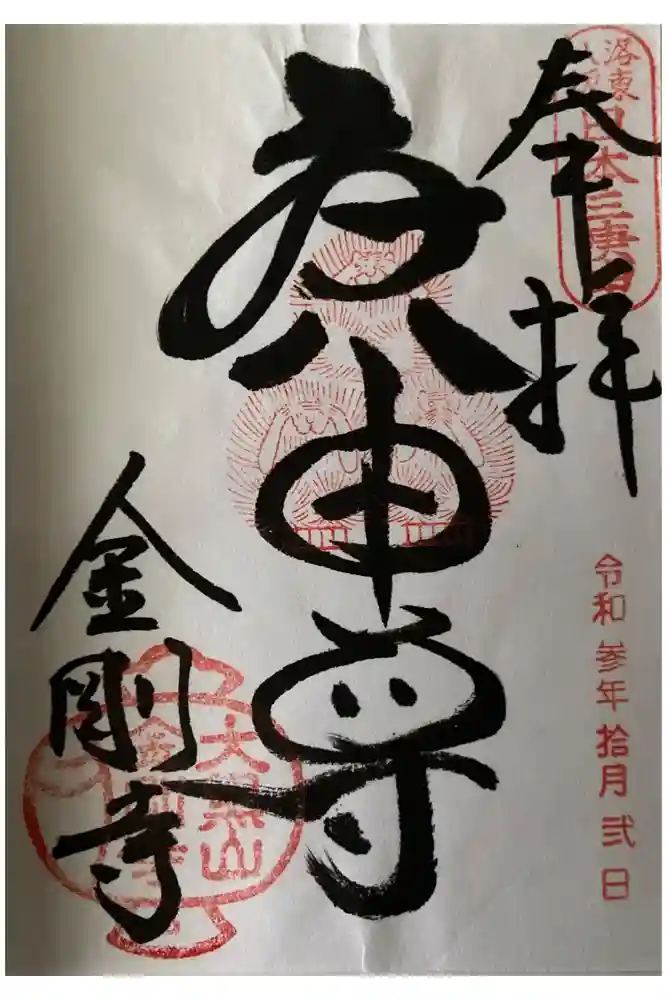 奉拝
洛東
八坂
日本三庚申
庚申尊
令和参年拾月弐日
金剛寺
大黒山
金剛寺